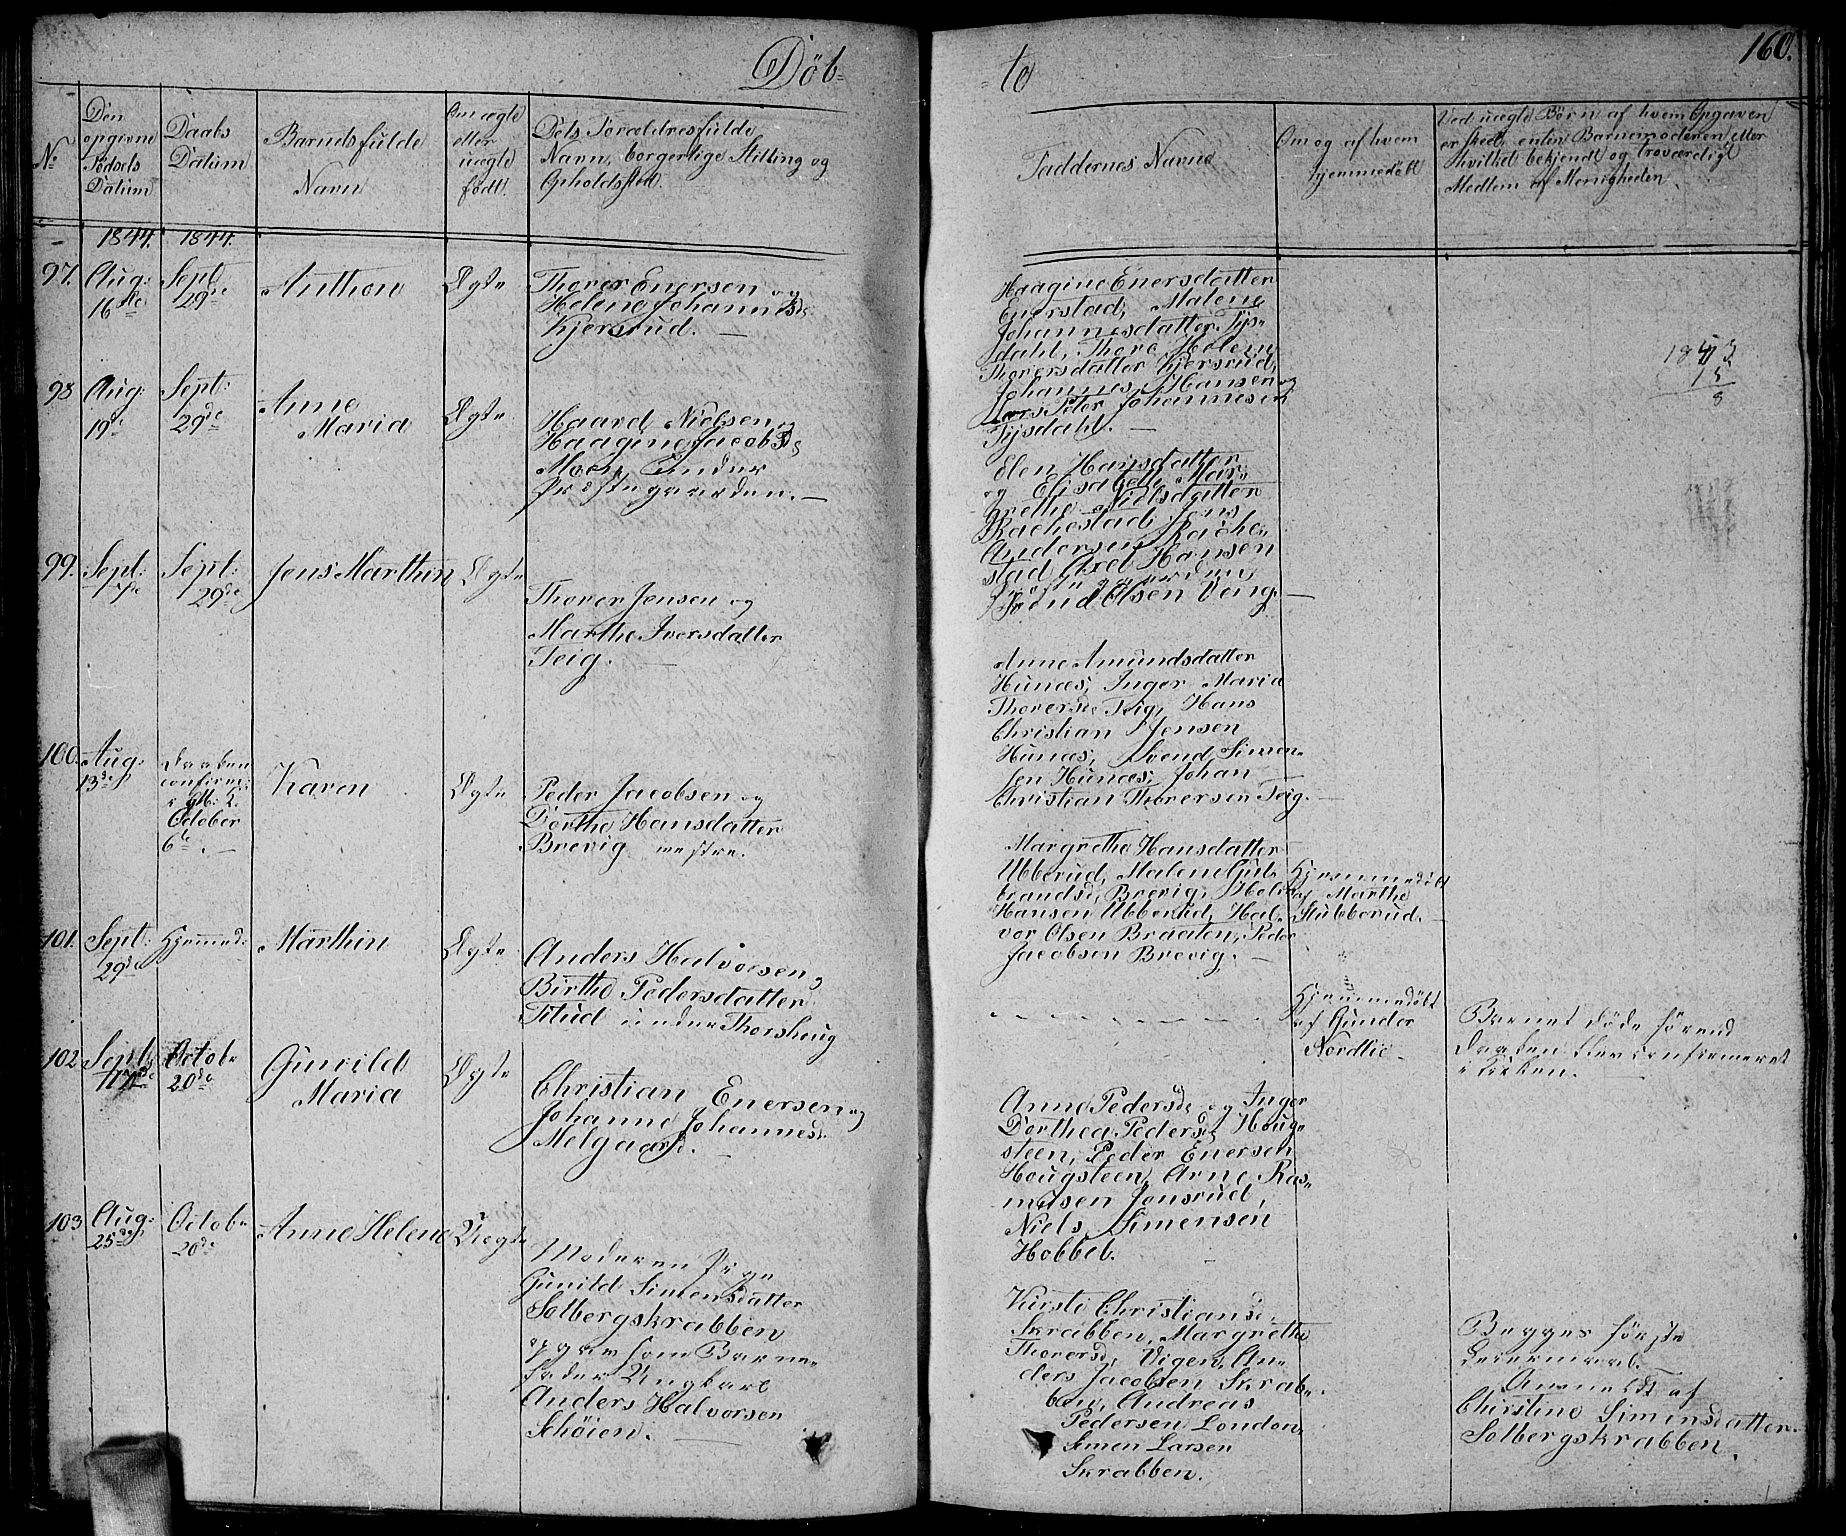 Döb=
=te
160.
No
Den
opgivne
Födsels
Datum
Daabs
Datum
Barnets fulde
Navn
Om ægte
eller
uægte
födt
Dets Forældres fulde
Navn, borgerlige Stilling og
Opholdssted.
Faddernes Navne
Om og af hvem
hjemmedöbt
Ved uægte Börn af hvem Opgaven
er skeet, enten Barnemoderen eller
hvilket bekjendt og troværdigt
Medlem af Menigheden.
1844. 1844.
97.
Aug:
16de
Sept
29de
Anthon
Ægte
Thorer Enersen og
Helene Johannesd.
Kjersrud. —
Haagine Enersdatter
Enerstad, Malene
Johannesdatter Tys=
dahl, Thore Helene
Thorersdatter Kjersrud,
Johannes Hansen og
Lars Peter Johannesen
Tysdahl. —
18
15
8
98
Aug:
19de
Sept:
29de
Anne
Maria
Ægte
Haard Nielsen og
Haagine Jacobsd.
Moen under
Præstegaarden. —
Elen Hansdatter
og Elisabeth Mar=
grethe Nielsdatter
Rachestad Jens
Andersen Rache=
stad Axel Hansen
Præstegaarden
Olsen Veng. —
99.
Sept:
17de
Sept:
29de
Jens Marthin
Ægte
Thorer Jensen og
Marthe Iversdatter
Teig. —
Anne Amundsdatter
Hunæs, Inger Maria
Thorersd. Teig, Hans
Christian Jensen
Hunæs, Svend Simen=
sen Hunæs, Johan
Christian Thorersen Teig. —
100.
Aug:
13de
Daaben
confirm:
October
6te. —
Karen
Ægte
Peder Jacobsen og
Dorthe Hansdatter
Brevig vestre.
Margrethe Hansdatter
Ubberud, Malene Gul=
brandsd. Brevig, Hel
Hansen Ubberud, Hal=
vor Olsen Braaten, Peder
Jacobsen Brevig. —
Hjemmedöbt
af Marthe
Stubberud. —
101.
Sept:
29de
Hjemmed:
Marthin
Ægte
Anders Halvorsen og
Birthe Pedersdatter
under Thorshoug
Hjemmedöbt
af Gunder
Nordlie —
Barnet döde förend
Daaben blev confirmeret
i Kirken. —
102
Sept:
17de
Octob=
20de
Gunild
Maria
Ægte
Christian Enersen og
Johanne Johannesd.
Melgaard. —
Anne Pedersd. og Inger
Dorthea Pedersd. Houg=
steen, Peder Enersen
Hougsteen, Arne Ras=
musen Jonsrud,
Niels Simensen
Hobbel.
103
Aug:
25de
Octob=
20de
Anne Helene
Uægte
Moderen Pige
Gunild Simensdatter
Solbergskrabben
opgav som Barne=
fader Ungkarl
Anders Halvorsen
Schöien. —
Kirsti Christiansd.
Skrabben, Margrethe
Thorersd. Vigen, An=
ders Jacobsen Skrab=
ben, Andreas
Pedersen London,
Simen Larsen
Skrabben.
Begges förste
Leiermaal. —
Anmeldt af
Christine Simensdatter
Solbergskrabben.